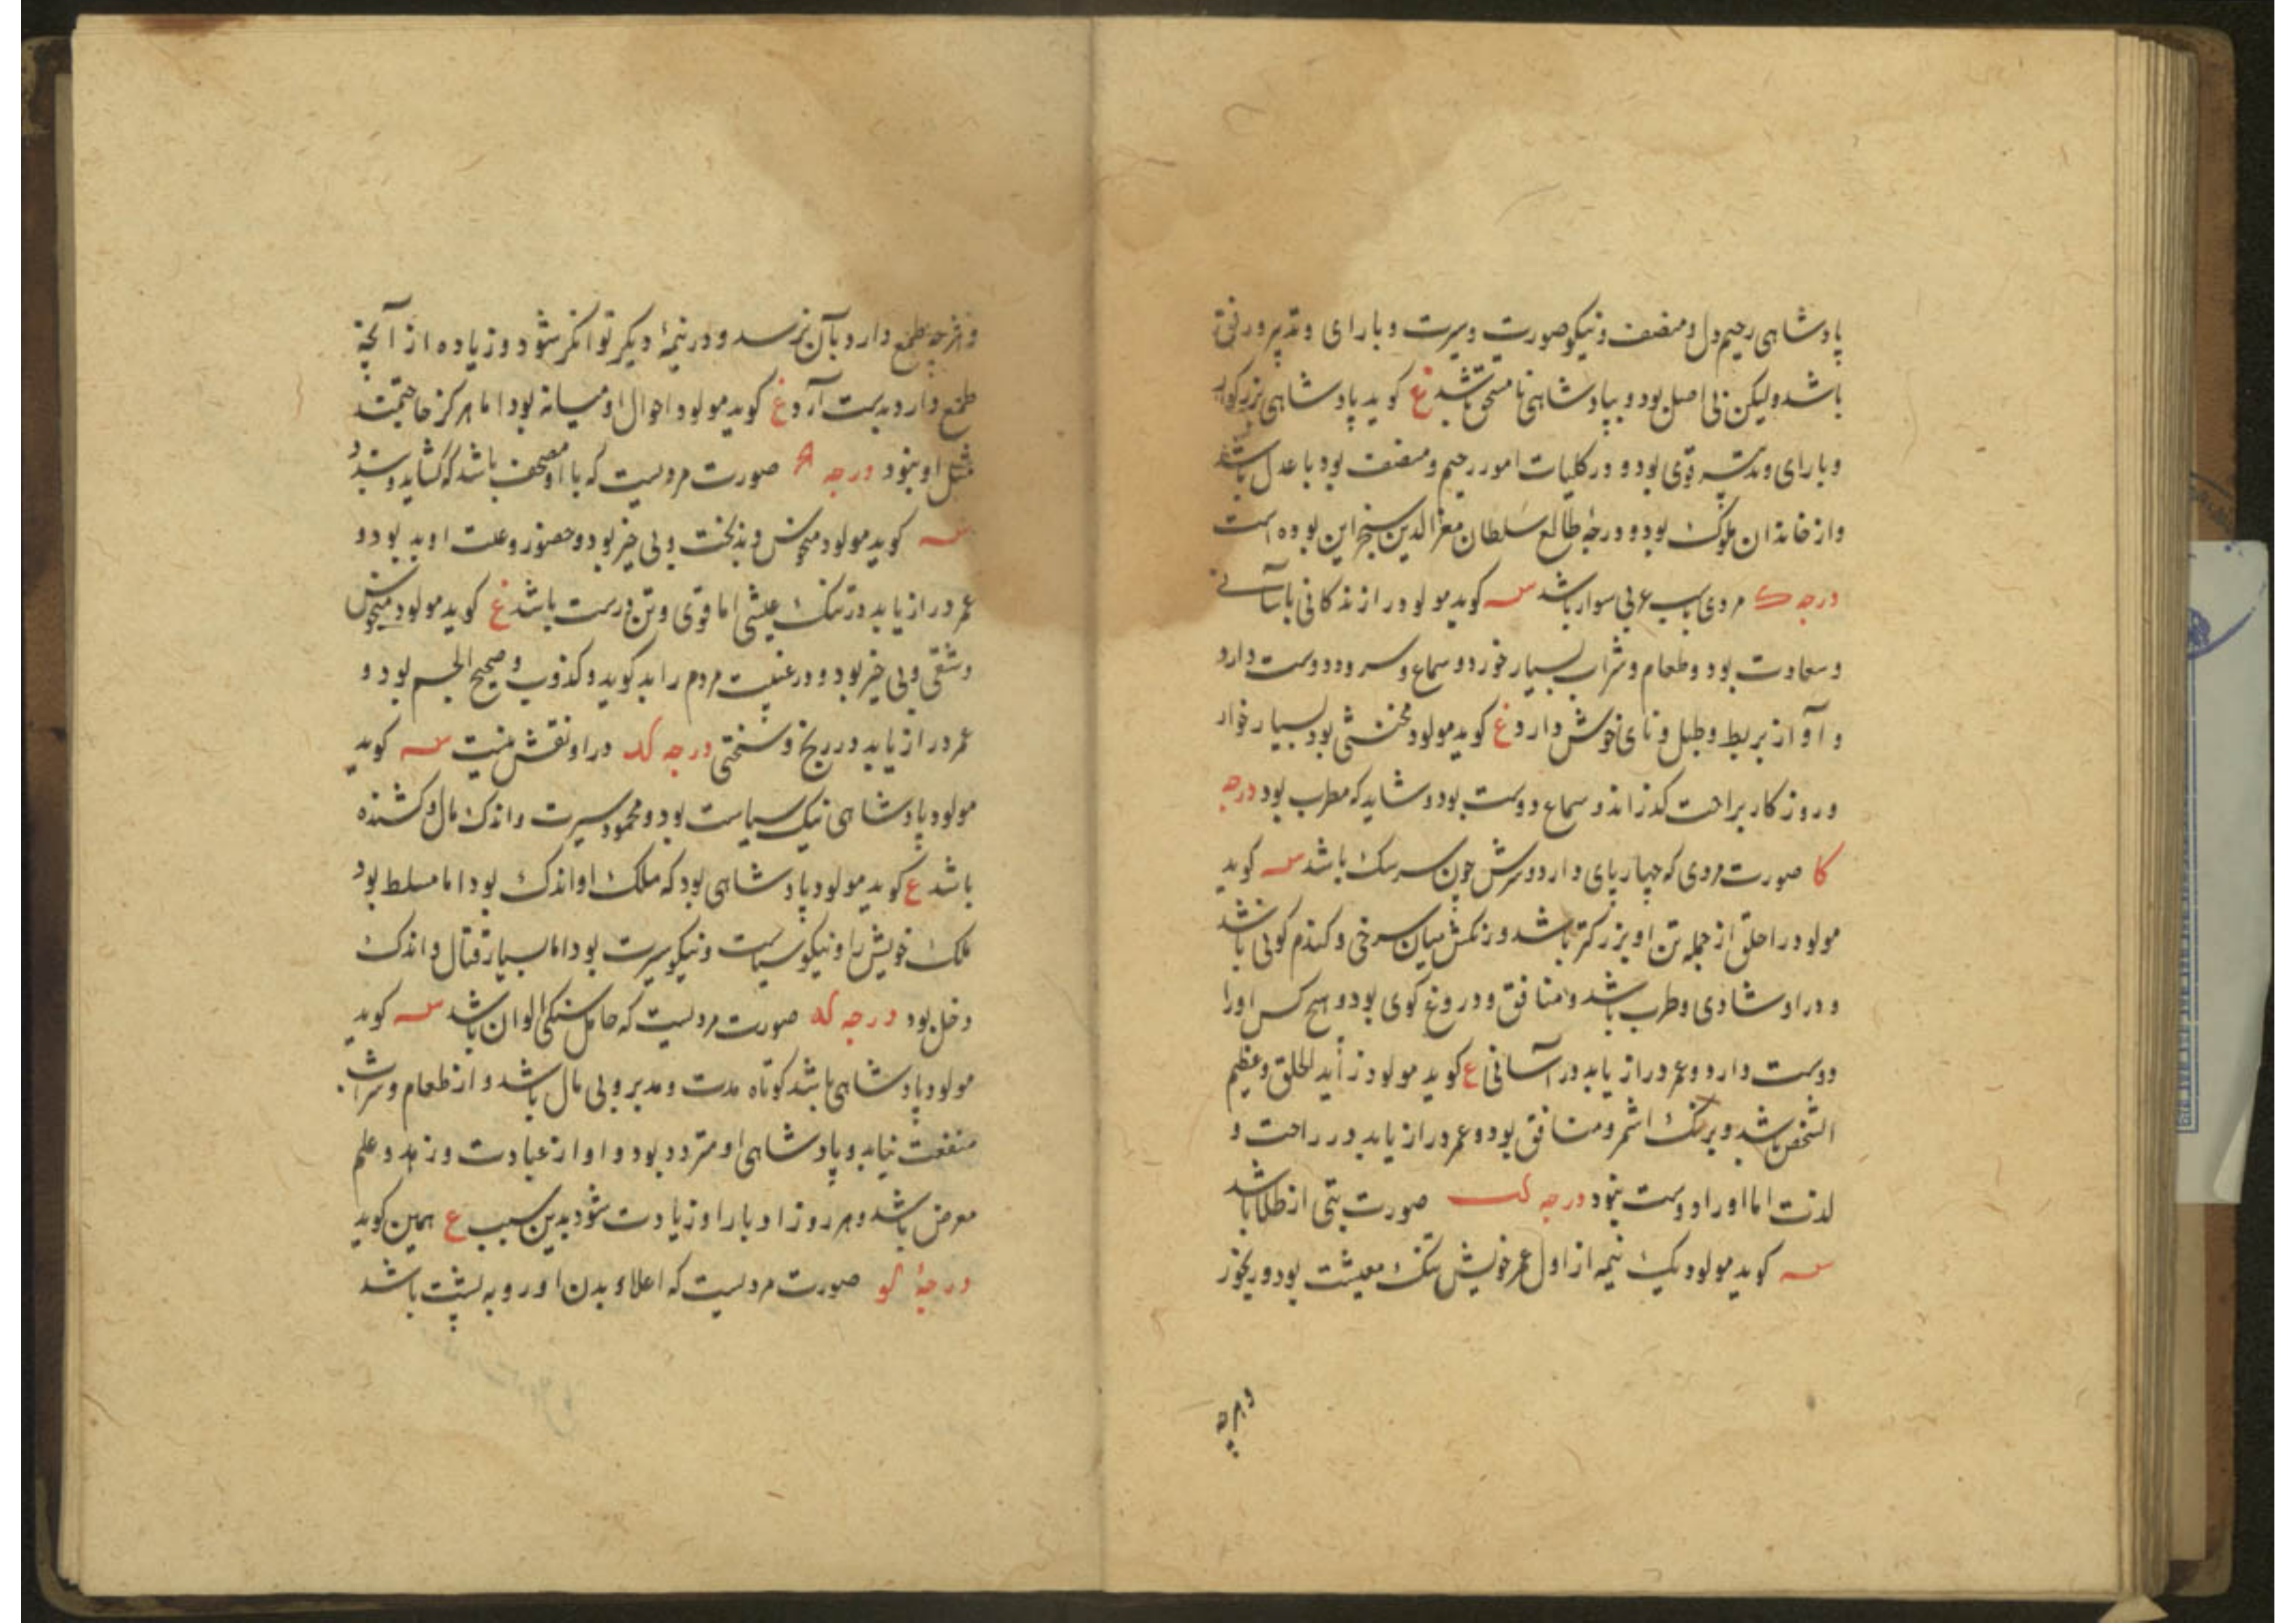 پادشاهی رحیم دل و منصف و نیکو صورت و سیرت و با رای و تدبیر و رفق
باشد ولیکن بی اصل بود و بپادشاهی نامستحق باشد ع کوید پادشاهی بزرکوار
و با رای و تدبیر قوی بود و در کلیات امور رحیم و منصف بود با عدل باشد
و از خاندان ملوک بود و درجهٔ طالع سلطان معز الدین سنجر این بوده است
درجه ک مردی باسب عربی سوار باشد س کوید مولود راز ندکانی باسانی
و سعادت بود و طعام و شراب بسیار خورد و سماع و سرود دوست دارد
و آواز بربط و طبل و نای خوش دارد ع کوید مولود مخنثی بود بسیار خوار
و روزکار براحت کذراند و سماع دوست بود و شاید که مطرب بود درجه
کا صورت مردی که چهارپای دارد و سرش چون سر سک باشد س کوید
مولود را حلق از جمله تن او بزرکتر باشد و رنکش میان سرخی و کندم کونی باشد
و در او شادی و طرب باشد و منافق و دروغ کوی بود و هیچ کس او را
دوست دارد و عمر دراز یابد در آسانی ع کوید مولود زاید الخلق و عظیم
الشخص باشد و برنک اشقر و منافق بود و عمر دراز یابد در راحت و
لذت اما او را دوست نبود درجه کب صورت بتی از طلا باشد
س کوید مولود یک نیمه از اول عمر خویش تنک معیشت بود و بهر چیز
و هر چه
و هر چه طمع دارد بآن نرسد و در نیمهٔ دیکر توانکر شود و زیاده از آنچه
طمع دارد بدست آرد ع کوید مولود احوال او میانه بود اما هرکز خاتمت
مثل او نبود درجه صورت مردیست که با او مصحف باشد که کشاید و بندد
س کوید مولود منحوس و بدبخت و بی خیر بود و حضور و غیبت او بد بود و
عمر دراز یابد در تنک عیشی اما قوی و تن درست باشد ع کوید مولود منحوس
و شقی و بی خیر بود و در غیبت مردم را بد کوید و کذوب و صحیح الجسم بود و
عمر دراز یابد در رنج و سختی درجه کد در او نقش نیست س کوید
مولود پادشاهی نیک سیاست بود و محمود سیرت و اندک مال و کشنده
باشد ع کوید مولود پادشاهی بود که ملک او اندک بود اما مسلط بود
ملک خویش را و نیکو سیاست و نیکو سیرت بود اما بسیار قتال و اندک
دخل بود درجه که صورت مردیست که حامل سنکی الوان باشد س کوید
مولود پادشاهی باشد کوتاه مدت و مدبر و بی مال باشد و از طعام و شراب
منفعت نیابد و پادشاهی او متردد بود و او از عبادت و زهد و علم
معرض باشد و هر روز ادبار او زیادت شود بدین سبب ع همین کوید
درجهٔ کو صورت مردیست که اعلاء بدن او رو به پشت باشد